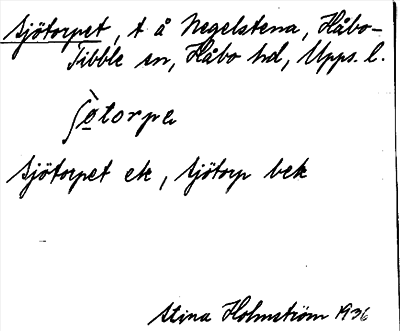 Sjötorpet, t å Negelstena, Håbo-
Tibble sn, Håbo hd, Upps. l.
ʃö̀torpe
Sjötorpet ek, Sjötorp bek
Stina Holmström 1936